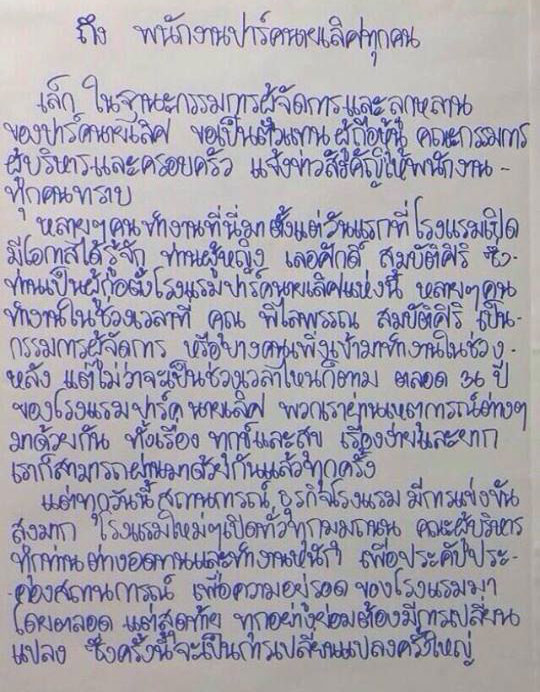 ถึง พนักงานปาร์คนายเลิศทุกคน
เล็ก ในฐานะกรรมการผู้จัดการและลูกหลาน
ของปาร์คนายเลิศ ขอเป็นตัวแทน ผู้ถือหุ้น คณะกรรมการ
ผู้บริหารและครอบครัว แจ้งข่าวสำคัญให้พนักงาน -
ทุกคนทราบ
หลายๆคนทำงานที่นี่มา ตั้งแต่วันแรกที่โรงแรมเปิด
มีโอกาสได้รู้จัก ท่านผู้หญิง เลอศักดิ์ สมบัติศิริ ซึ่ง-
ท่านเป็นผู้ก่อตั้งโรงแรมปาร์คนายเลิศแห่งนี้ หลายๆคน
ทำงานในช่วงเวลาที่ คุณ พิไลพรรณ สมบัติศิริ เป็น-
กรรมการผู้จัดการ หรือบางคนเพิ่งเข้ามาทำงานในช่วง-
หลัง แต่ไม่ว่าจะเป็นช่วงเวลาไหนก็ตาม ตลอด 36 ปี
ของโรงแรมปาร์คนายเลิศ พวกเราผ่านเหตุการณ์ต่างๆ
มาด้วยกัน ทั้งเรื่อง ทุกข์และสุข เรื่องง่ายและยาก
เราก็สามารถผ่านมาด้วยกันแล้วทุกครั้ง
แต่ทุกวันนี้ สถานการณ์ ธุรกิจโรงแรม มีการแข่งขัน
สูงมาก โรงแรมใหม่ๆเปิดทั่วทุกมุมถนน คณะผู้บริหาร
ทุกท่าน ต่างอดทนและทำงานหนัก เพื่อประคับประ-
-คองสถานการณ์ เพื่อความอยู่รอด ของโรงแรมมา
โดยตลอด แต่สุดท้าย ทุกอย่างย่อมต้องมีการเปลี่ยน
แปลง ซึ่งครั้งนี้จะเป็นการเปลี่ยนแปลงครั้งใหญ่